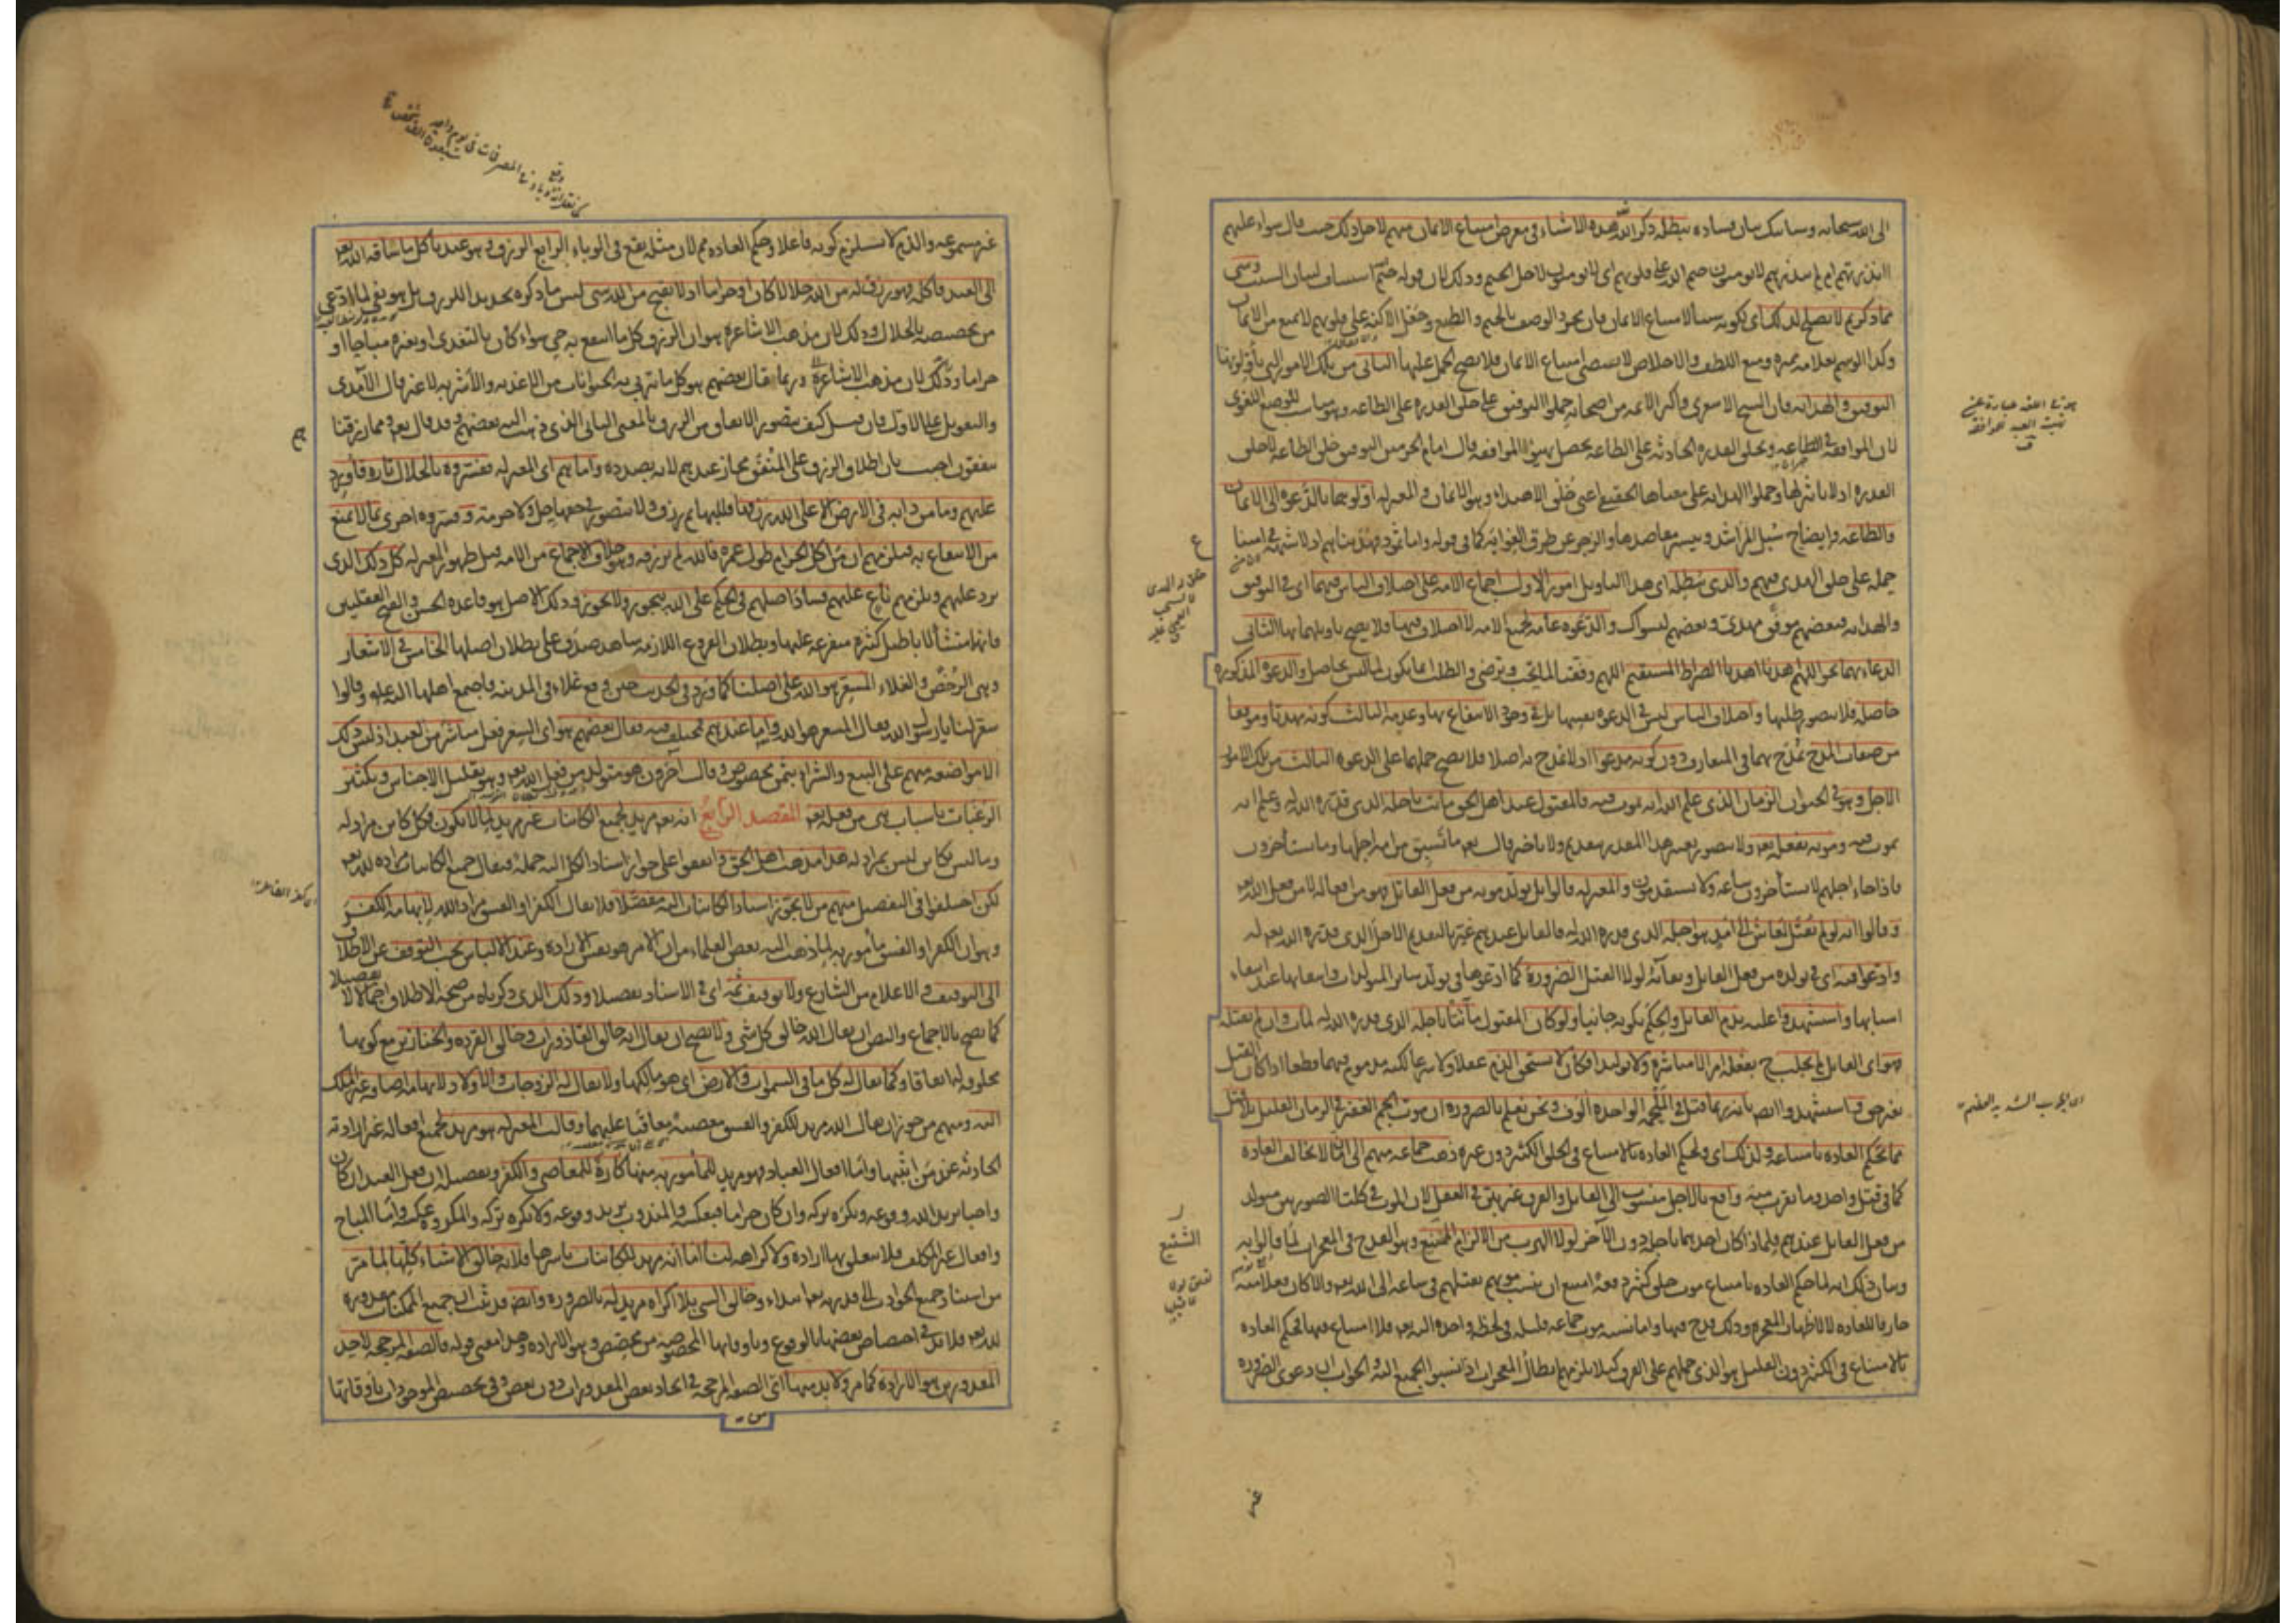 الى الله سبحانه وسيأتيك بيان فساده يبطله ذكر الله هذه الاشياء في معرض امتناع الايمان منهم لاجل ذلك حيث قال سواء عليهم
أانذرتهم ام لم تنذرهم لا يؤمنون ختم الله على قلوبهم اى لا يؤمنون لاجل الختم وذلك لان قوله ختم استيناف لبيان السبب وشى
مما ذكرتم لا يصلح لذلك اى لكونه سببا لامتناع الايمان فان مجرد الوصف بالختم والطبع وجعل الاكنة على قلوبهم لا يمنع من الايمان
وكذا الوسم بعلامة مميزة ومنع اللطف والاخلاص لا يقتضى امتناع الايمان فلا يصح الحمل عليها الثانى من تلك الامور التى يأولونها
التوفيق والهداية فان الشيخ الاشعرى واكثر الائمة من اصحابه حملوا التوفيق على خلق القدرة على الطاعة وهو مناسب للوضع اللغوى
لان الموافقة الطاعة وبخلق القدرة الحادثة على الطاعة يحصل تهيؤ الموافقة وقال امام الحرمين التوفيق خلق الطاعة لا خلق
القدرة اذ لا تأثير لها وحملوا الهداية على معناها الحقيقى اعنى خلق الاهتداء وهو الايمان والمعتزلة اولوهما بالدعوة الى الايمان
والطاعة وايضاح سبل المراشد وتيسير مقاصدها والزجر عن طرق الغواية كما فى قوله واما ثمود فهديناهم اذ لا شبهة فى امتناع
حمله على خلق الهدى فيهم والذى يبطله اى هذا التأويل امور الاول اجماع الامة على اختلاف الناس فيهما اى فى التوفيق
والهداية فبعضهم موفق مهدى وبعضهم ليسوا كذلك والدعوة عامة لجميع الامة لا اختلاف فيها فلا يصح تأويلهما بها الثانى
الدعاء بهما نحو اللهم اهدنا الصراط المستقيم اللهم وفقنا لما تحب وترضى والطلب انما يكون لما ليس بحاصل والدعوة المذكورة
حاصلة فلا يتصور طلبها واختلاف الناس ليس فى الدعوة نفسها بل فى وجود الانتفاع بها وعدمه الثالث كونه مهديا وموفقا
من صفات المدح يمدح بهما فى المتعارف دون كونه مدعوا اذ لا يمدح به اصلا فلا يصح حملهما على الدعوة الثالث من تلك الامور
الاجل وهو فى الحيوان الزمان الذى علم الله انه يموت فيه فالمقتول عند اهل الحق ميت باجله الذى قدره الله له وعلم انه
يموت فيه وموته بفعله تعه ولا يتصور تغير هذا المقدر بتقديم ولا تأخير قال تعه ما تسبق من امة اجلها وما يستأخرون
فاذا جاء اجلهم لا يستأخرون ساعة ولا يستقدمون والمعتزلة قالوا بل تولد موته من فعل القاتل فهو من افعاله لا من فعل الله تعه
وقالوا انه لو لم يقتل لعاش الى امد هو اجله الذى قدره الله له فالقاتل عندهم غير بالتقديم الاجل الذى قدره الله تعه له
وادعوا فيه اى فى تولده من فعل القاتل وبقائه لولا القتل الضرورة كما ادعوها فى تولد سائر المتولدات وانتفائها عند انتفاء
اسبابها واستشهدوا عليه بذم القاتل والحكم بكونه جانيا ولو كان المقتول مائتا باجله الذى قدره الله له لمات وان لم يقتله
فهو اى القاتل لم يجلب ح بفعله امرا لا مباشرة ولا توليدا فكان لا يستحق الذم عقلا ولا شرعا لكنه مذموم فيهما قطعا اذا كان القتل
بغير حق واستشهدوا ايضا بانه ربما قتل فى الملحمة الواحدة الوف ونحن نعلم بالضرورة ان موت الجم الغفير فى الزمان القليل بلا قتل
مما تحكم العادة بامتناعه ولذلك اى ولحكم العادة بالامتناع فى الخلق الكثير دون غيره ذهب جماعة منهم الى ان ما لا يخالف العادة
كما فى قتل واحد وما يقرب منه واقع بالاجل منسوب الى القاتل والفرق غير بين فى العقل لان الموت فى كلتا الصورتين متولد
من فعل القاتل عندهم فلماذا كان احدهما باجله دون الآخر لولا الهرب من الالزام الشنيع وهو القدح فى المعجزات لما قالوا به
وبيان ذلك انه لما حكم العادة بامتناع موت خلق كثير دفعة امتنع ان ينسب موتهم بقتلهم فى ساعة الى الله تعه والا كان فعلا منه
خارقا للعادة لا لاظهار المعجزة وذلك قدح فيها واما نسبة موت جماعة قليلة فى لحظة واحدة اليه تعه فلا امتناع فيها فحكم العادة
بالامتناع فى الكثير دون القليل هو الذى حملهم على الفرق كيلا يلزمهم ابطال المعجزات اذا نسبوا الجميع اليه والجواب ان دعوى الضرورة
غير مسموعة والذم لا يستلزم كونه فاعلا وحكم العادة مم لان مثله يقع فى الوباء الرابع الرزق وهو عندنا كل ما ساقه الله تعه
الى العبد فأكله فهو رزق له من الله حلالا كان او حراما اذ لا يقبح من الله شى ليس ما ذكره تحديدا للرزق بل هو نفى لما ادعى
من تخصيصه بالحلال وذلك لان مذهب الاشاعرة هو ان الرزق كل ما انتفع به حى سواء كان بالتغذى او بغيره مباحا او
حراما وذلك لان مذهب الاشاعرة وربما قال بعضهم هو كل ما يتربى به الحيوانات من الاغذية والاشربة لا غير قال الآمدى
والتعويل على الاول فان قيل كيف يتصور الانفاق من الرزق بالمعنى الثانى الذى ذهب اليه بعضهم وقد قال تعه ومما رزقناهم
ينفقون اجيب بان اطلاق الرزق على المنفق مجاز عندهم لانه بصدده واما هم اى المعتزلة ففسروه بالحلال تارة فأورد
عليهم وما من دابة فى الارض الا على الله رزقها فللبهائم رزق ولا يتصور فى حقها حل ولا حرمة وفسروه اخرى بما لا يمنع
من الانتفاع به فيلزمهم ان من اكل الحرام طول عمره فالله لم يرزقه وهو خلاف الاجماع من الامة قبل ظهور المعتزلة كل ذلك الذى
يرد عليهم ويلزمهم تابع عليهم فساد اصلهم فى الحكم على الله بيجوز ولا يجوز وذلك الاصل هو قاعدة الحسن والقبح العقليين
فانها منشأ لاباطيل كثيرة متفرعة عليها وبطلان الفروع اللازمة شاهد صدق على بطلان اصلها الخامس فى الاسعار
وهى الرخص والغلاء المسعر هو الله على اصلنا كما ورد فى الحديث حين وقع غلاء فى المدينة فاجتمع اهلها اليه عليه وقالوا
سعر لنا يا رسول الله فقال المسعر هو الله واما عندهم فمختلف فيه فقال بعضهم هو اى السعر فعل مباشر من العبد اذ ليس ذلك
الا مواضعة منهم على البيع والشراء بثمن مخصوص وقال آخرون هو متولد من فعل الله تعه وهو تقليل الاجناس وتكثير
الرغبات باسباب هى من فعله تعه المقصد الرابع انه تعه مريد لجميع الكائنات غير مريد لما لا يكون فكل كائن مراد له
وما ليس بكائن ليس بمراد له هذا مذهب اهل الحق واتفقوا على جواز اسناد الكل اليه جملة فيقال جميع الكائنات مرادة لله تعه
لكن اختلفوا فى التفصيل منهم من لا يجوز اسناد الكائنات اليه مفصلا فلا يقال الكفر او الفسق مراد الله لايهامه الكفر
وهو ان الكفر او الفسق مأمور به لما ذهب اليه بعض العلماء من ان الامر هو نفس الارادة وعند الالباس يجب التوقف عن الاطلاق
الى التوقيف والاعلام من الشارع ولا توقيف ثمه اى فى الاسناد تفصيلا وذلك الذى ذكرناه من صحة الاطلاق اجمالا لا تفصيلا
كما يصح بالاجماع والنص ان يقال الله خالق كل شى ولا يصح ان يقال انه خالق القاذورات وخالق القردة والخنازير مع كونها
مخلوقة له اتفاقا وكما يقال له كل ما فى السموات والارض اى هو مالكها ولا يقال له الزوجات والاولاد لايهامه اضافة غير الملك
اليه ومنهم من جوز ان يقال الله مريد للكفر والفسق معصية معاقبا عليهما وقالت المعتزلة هو مريد لجميع افعاله غير ارادته
الحادثة عند من اثبتها واما افعال العباد فهو مريد للمأمور به منها كاره للمعاصى والكفر وتفصيله ان فعل العبد ان كان
واجبا يريد الله وقوعه ويكره تركه وان كان حراما فبعكسه والمندوب يريد وقوعه ولا يكره تركه والمكروه عكسه واما المباح
وافعال غير المكلف فلا يتعلق بها ارادة ولا كراهة لنا اما انه مريد للكائنات باسرها فلانه خالق الاشياء كلها لما مر
من استناد جميع الحوادث الى قدرته تعه ابتداء وخالق الشى بلا اكراه مريد له بالضرورة وايضا قد ثبت ان جميع الممكنات مقدورة
لله تعه فلا بد فى اختصاص بعضها بالوقوع وباوقاتها المخصوصة من مخصص وهو الارادة وهذا معنى قوله فالصفة المرجحة لاحد
المقدورين هو الارادة كما مر ولا بد منها اى الصفة المرجحة فى ايجاد بعض المقدورات دون بعض وفى تخصيص الموجودات باوقاتها